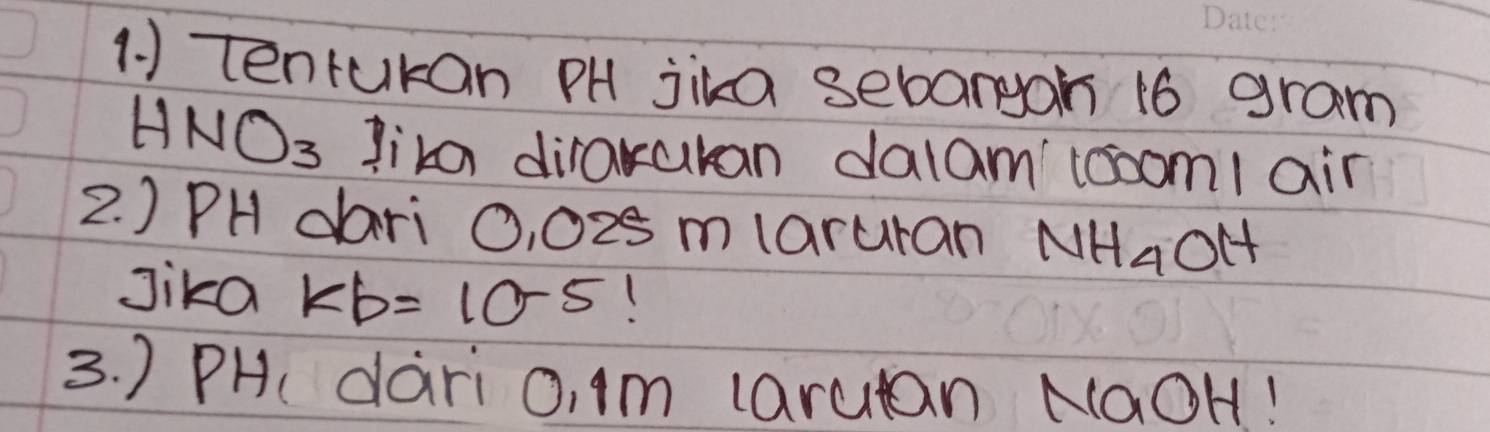 Date:
1.) Tentukan PH jika sebanyak 16 gram
HNO3 Jika dilakukan dalam 1000ml air
2.) PH dari 0,025 m larutan NH4OH
Jika Kb= 10-5!
3.) PH dari 0,1m larutan NaOH!